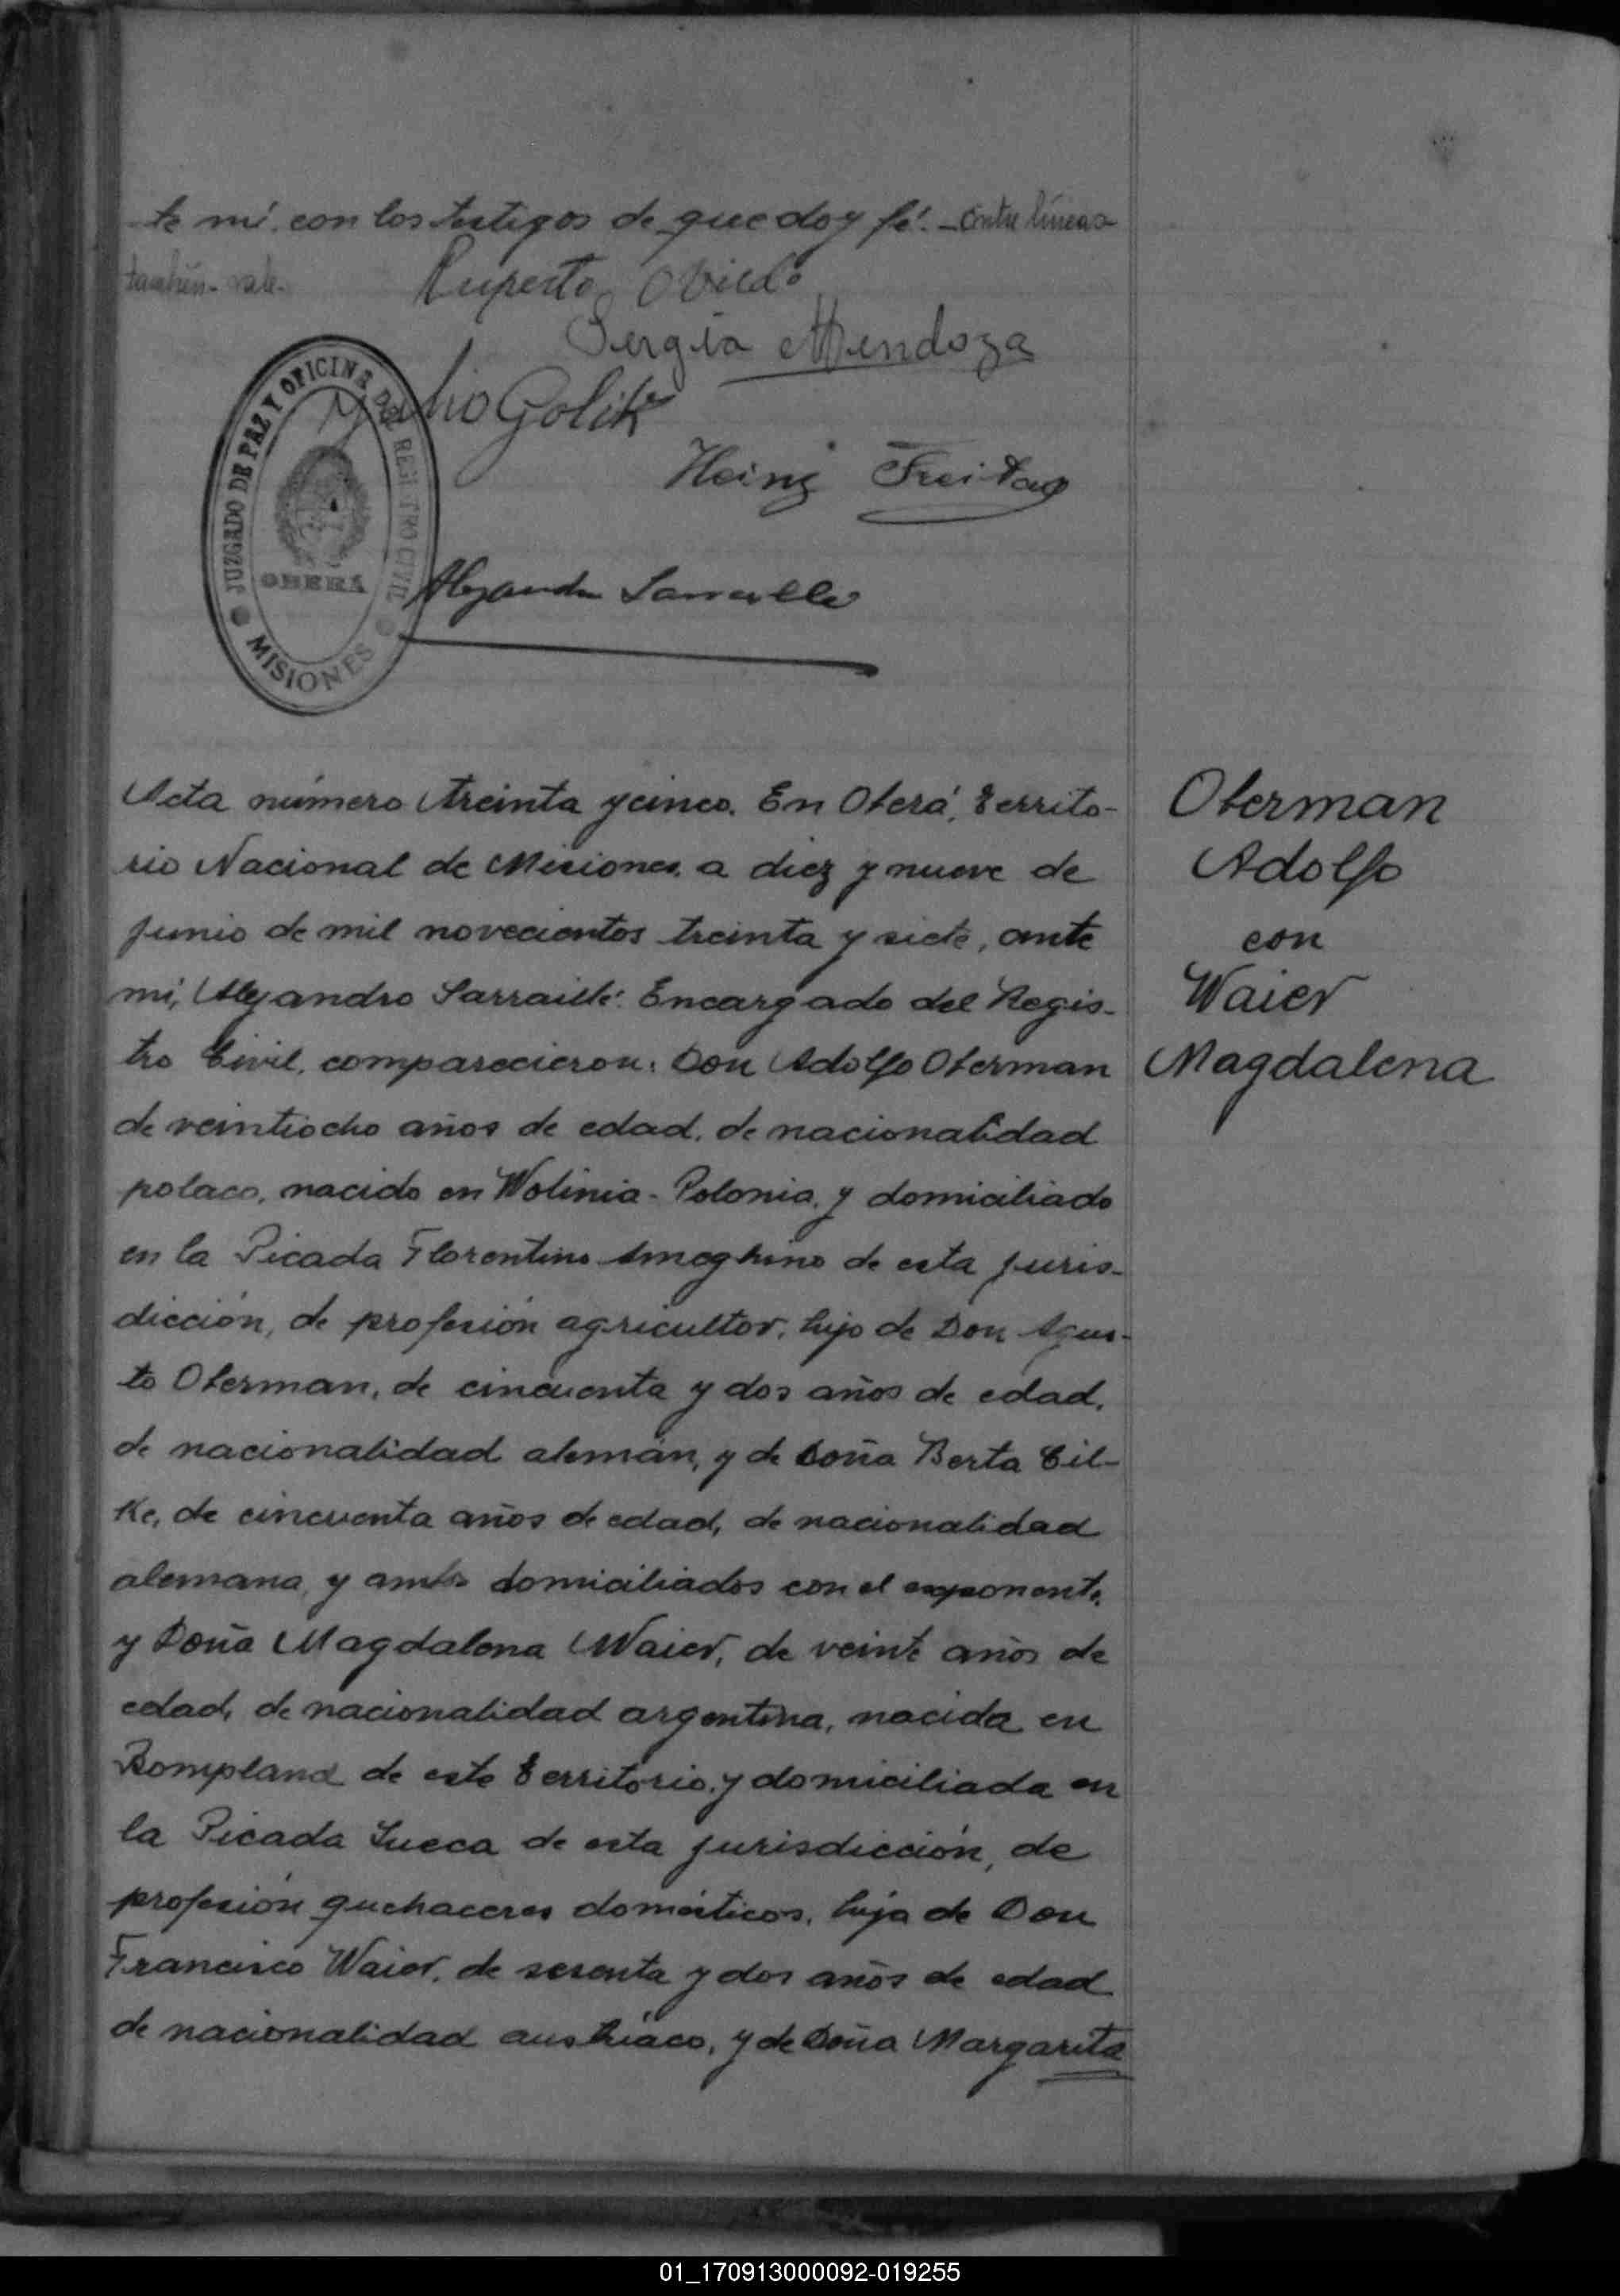 te mí, con los testigos de que doy fé.- Entre líneas
también- vale.-
Ruperto Oviedo
Sergia Mendoza
Julio Golik
Heinz Freitag
JUZGADO DE PAZ Y OFICINA DEL REGISTRO CIVIL
OBERÁ
MISIONES
Alejandro Sarraillé
Acta número treinta y cinco. En Oberá, Territo-
rio Nacional de Misiones, a diez y nueve de
junio de mil novecientos treinta y siete, ante
mí, Alejandro Sarraillé. Encargado del Regis-
tro Civil, comparecieron: Don Adolfo Oberman
de veintiocho años de edad, de nacionalidad
polaco, nacido en Wolinia - Polonia, y domiciliado
en la Picada Florentino Ameghino de esta juris-
dicción, de profesión agricultor, hijo de Don Agus-
to Oberman, de cincuenta y dos años de edad,
de nacionalidad alemán, y de Doña Berta Cil-
ke, de cincuenta años de edad, de nacionalidad
alemana, y ambos domiciliados con el exponente,
y Doña Magdalena Waier, de veinte años de
edad, de nacionalidad argentina, nacida en
Bompland de este Territorio, y domiciliada en
la Picada Sueca de esta jurisdicción, de
profesión quehaceres domésticos, hija de Don
Francisco Waier, de sesenta y dos años de edad
de nacionalidad austríaco, y de Doña Margarita
Oberman
Adolfo
con
Waier
Magdalena
01_170913000092-019255